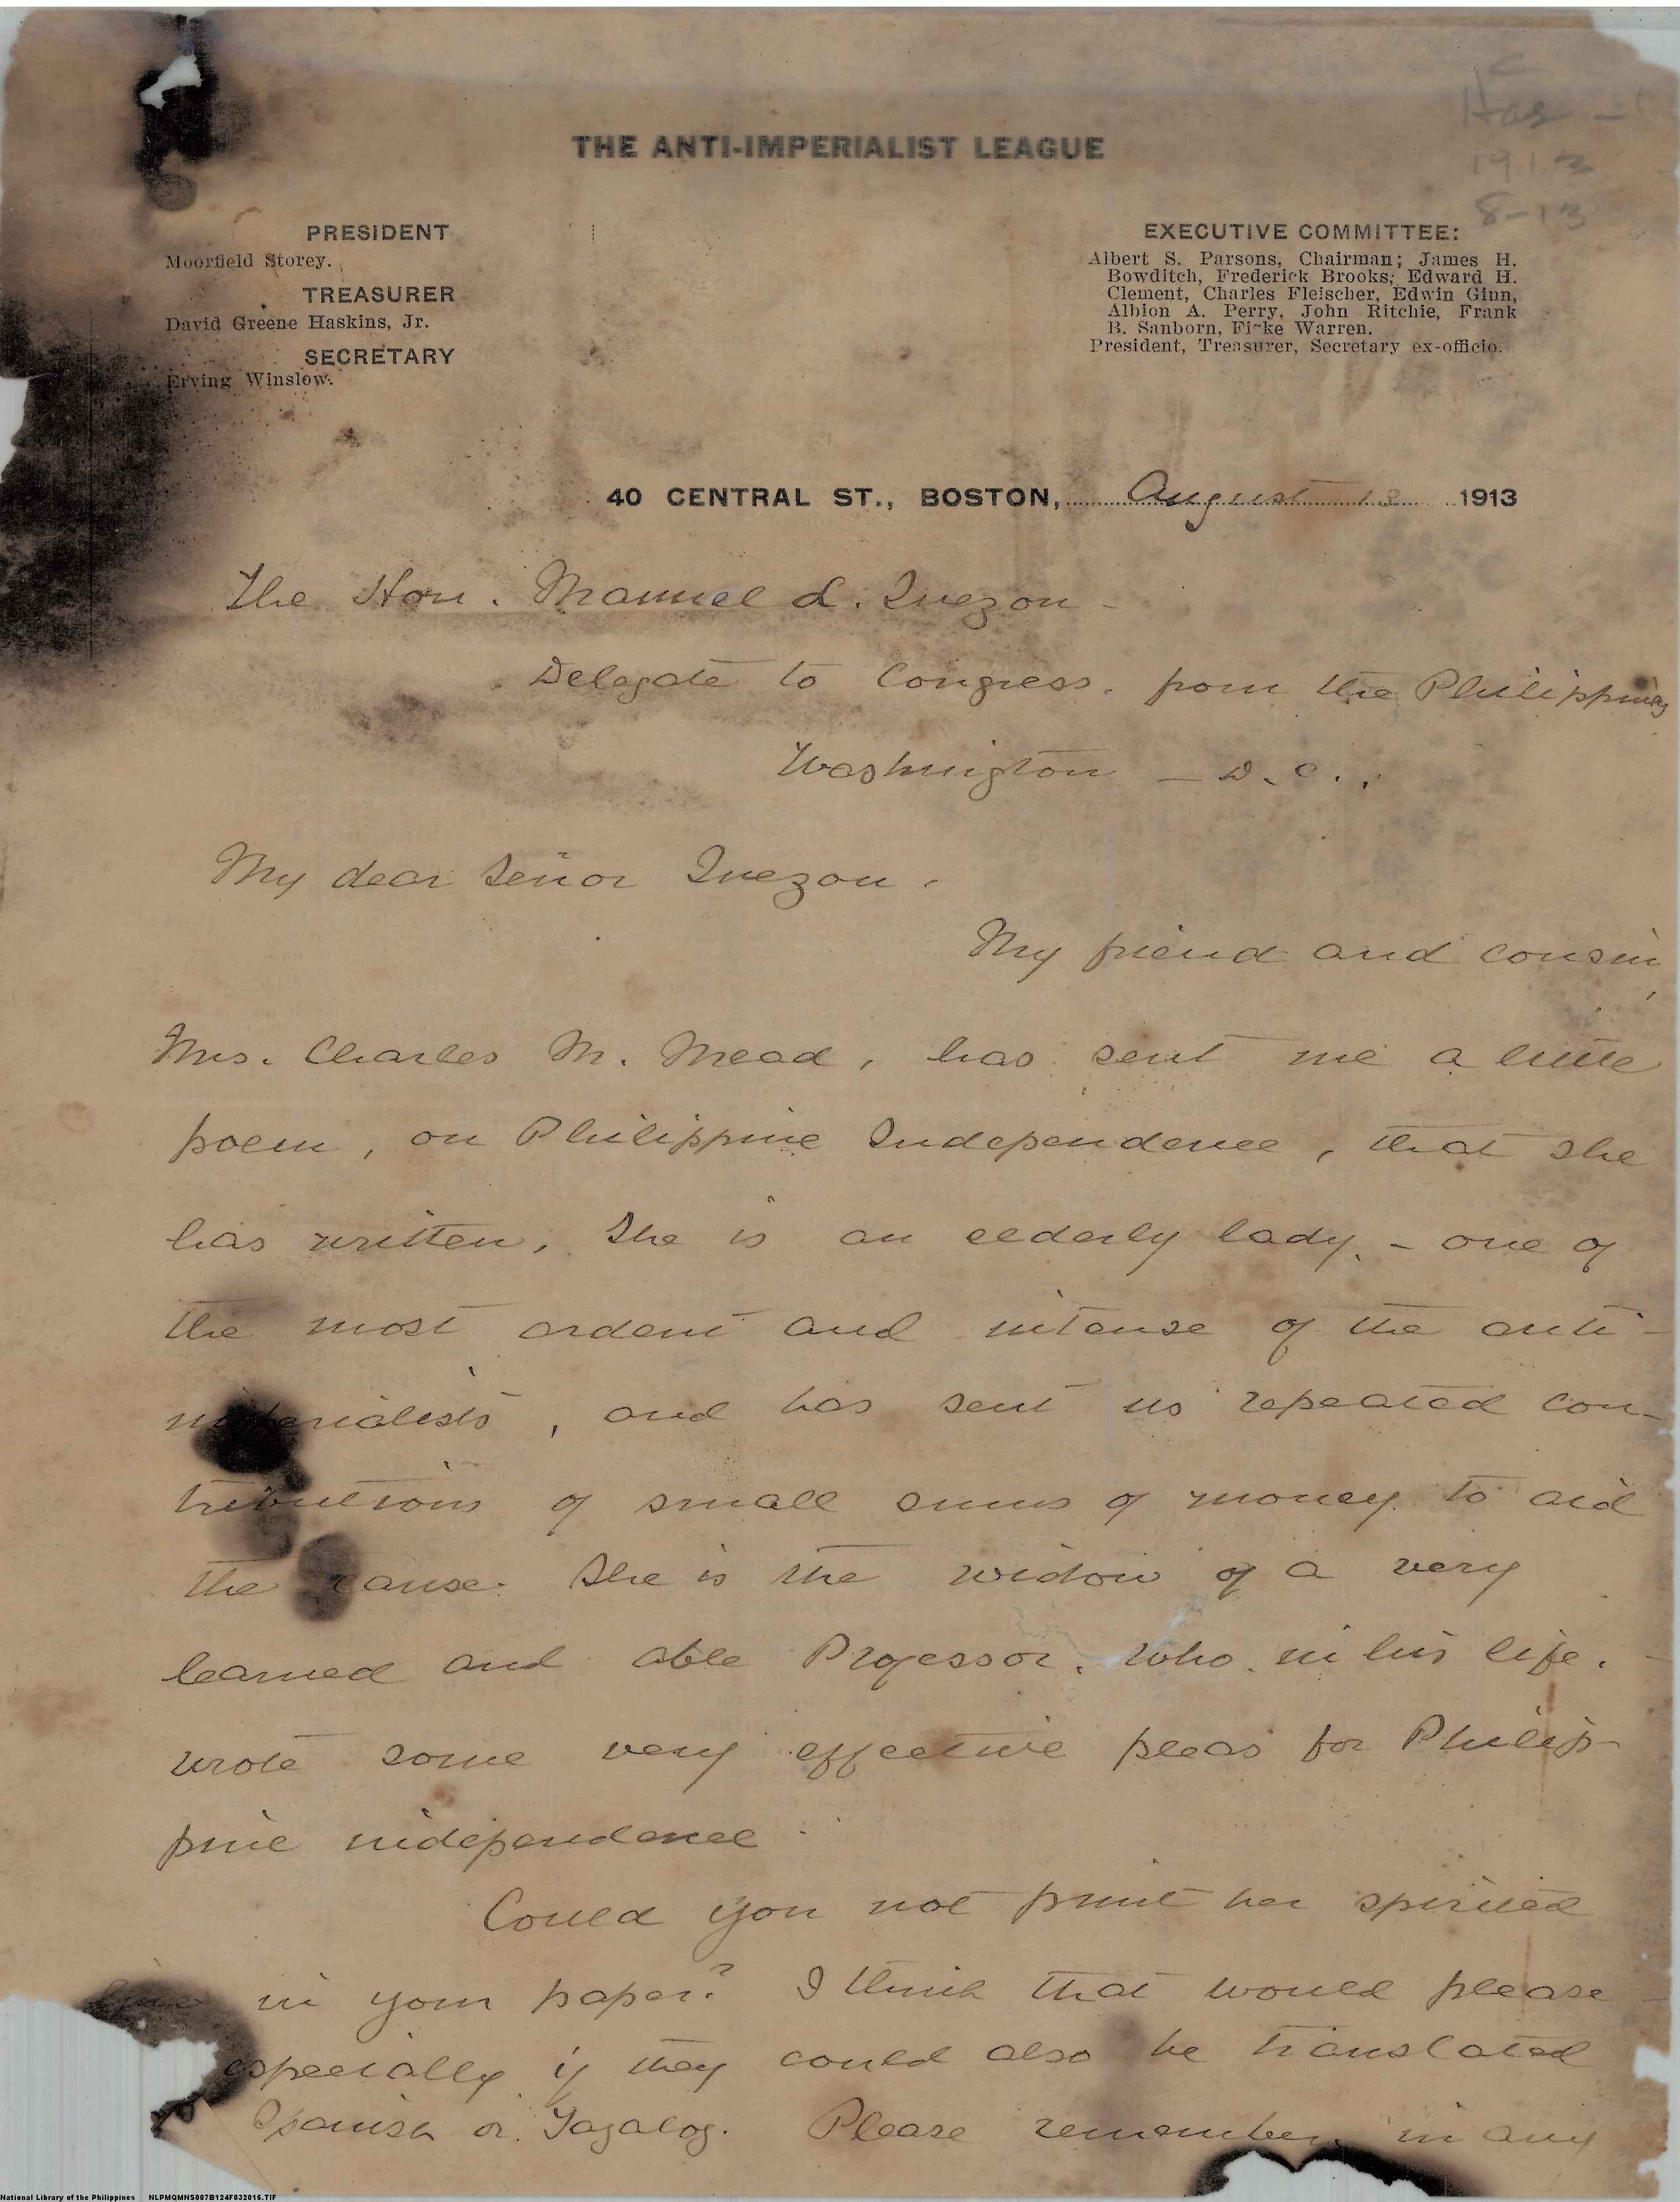 Has -
1913
8-13
THE ANTI-IMPERIALIST LEAGUE
PRESIDENT
Moorfield Storey.
TREASURER
David Greene Haskins, Jr.
SECRETARY
Erving Winslow.
EXECUTIVE COMMITTEE:
Albert S. Parsons, Chairman; James H.
Bowditch, Frederick Brooks; Edward H.
Clement, Charles Fleischer, Edwin Ginn,
Albion A. Perry, John Ritchie, Frank
B. Sanborn, Fiske Warren.
President, Treasurer, Secretary ex-officio.
40 CENTRAL ST., BOSTON, August 13 1913
The Hon. Manuel L. Quezon -
Delegate to Congress. from the Philippines
Washington - D.C.,
My dear Señor Quezon.
My friend and cousin,
Mrs. Charles M. Mead, has sent me a little
poem, on Philippine Independence, that she
has written. She is an elderly lady. - one of
the most ardent and intense of the anti-
materialists, and has sent us repeated con-
tributions of small sums of money to aid
the cause. She is the widow of a very
learned and able Professor. who. in his life.
wrote some very effective pleas for Philip-
pine independence
Could you not print her spirited
in your paper? I think that would please
especially if they could also be translated
Spanish or Tagalog. Please remember in any
National Library of the Philippines NLPMQMNS007B124F032015.TIF